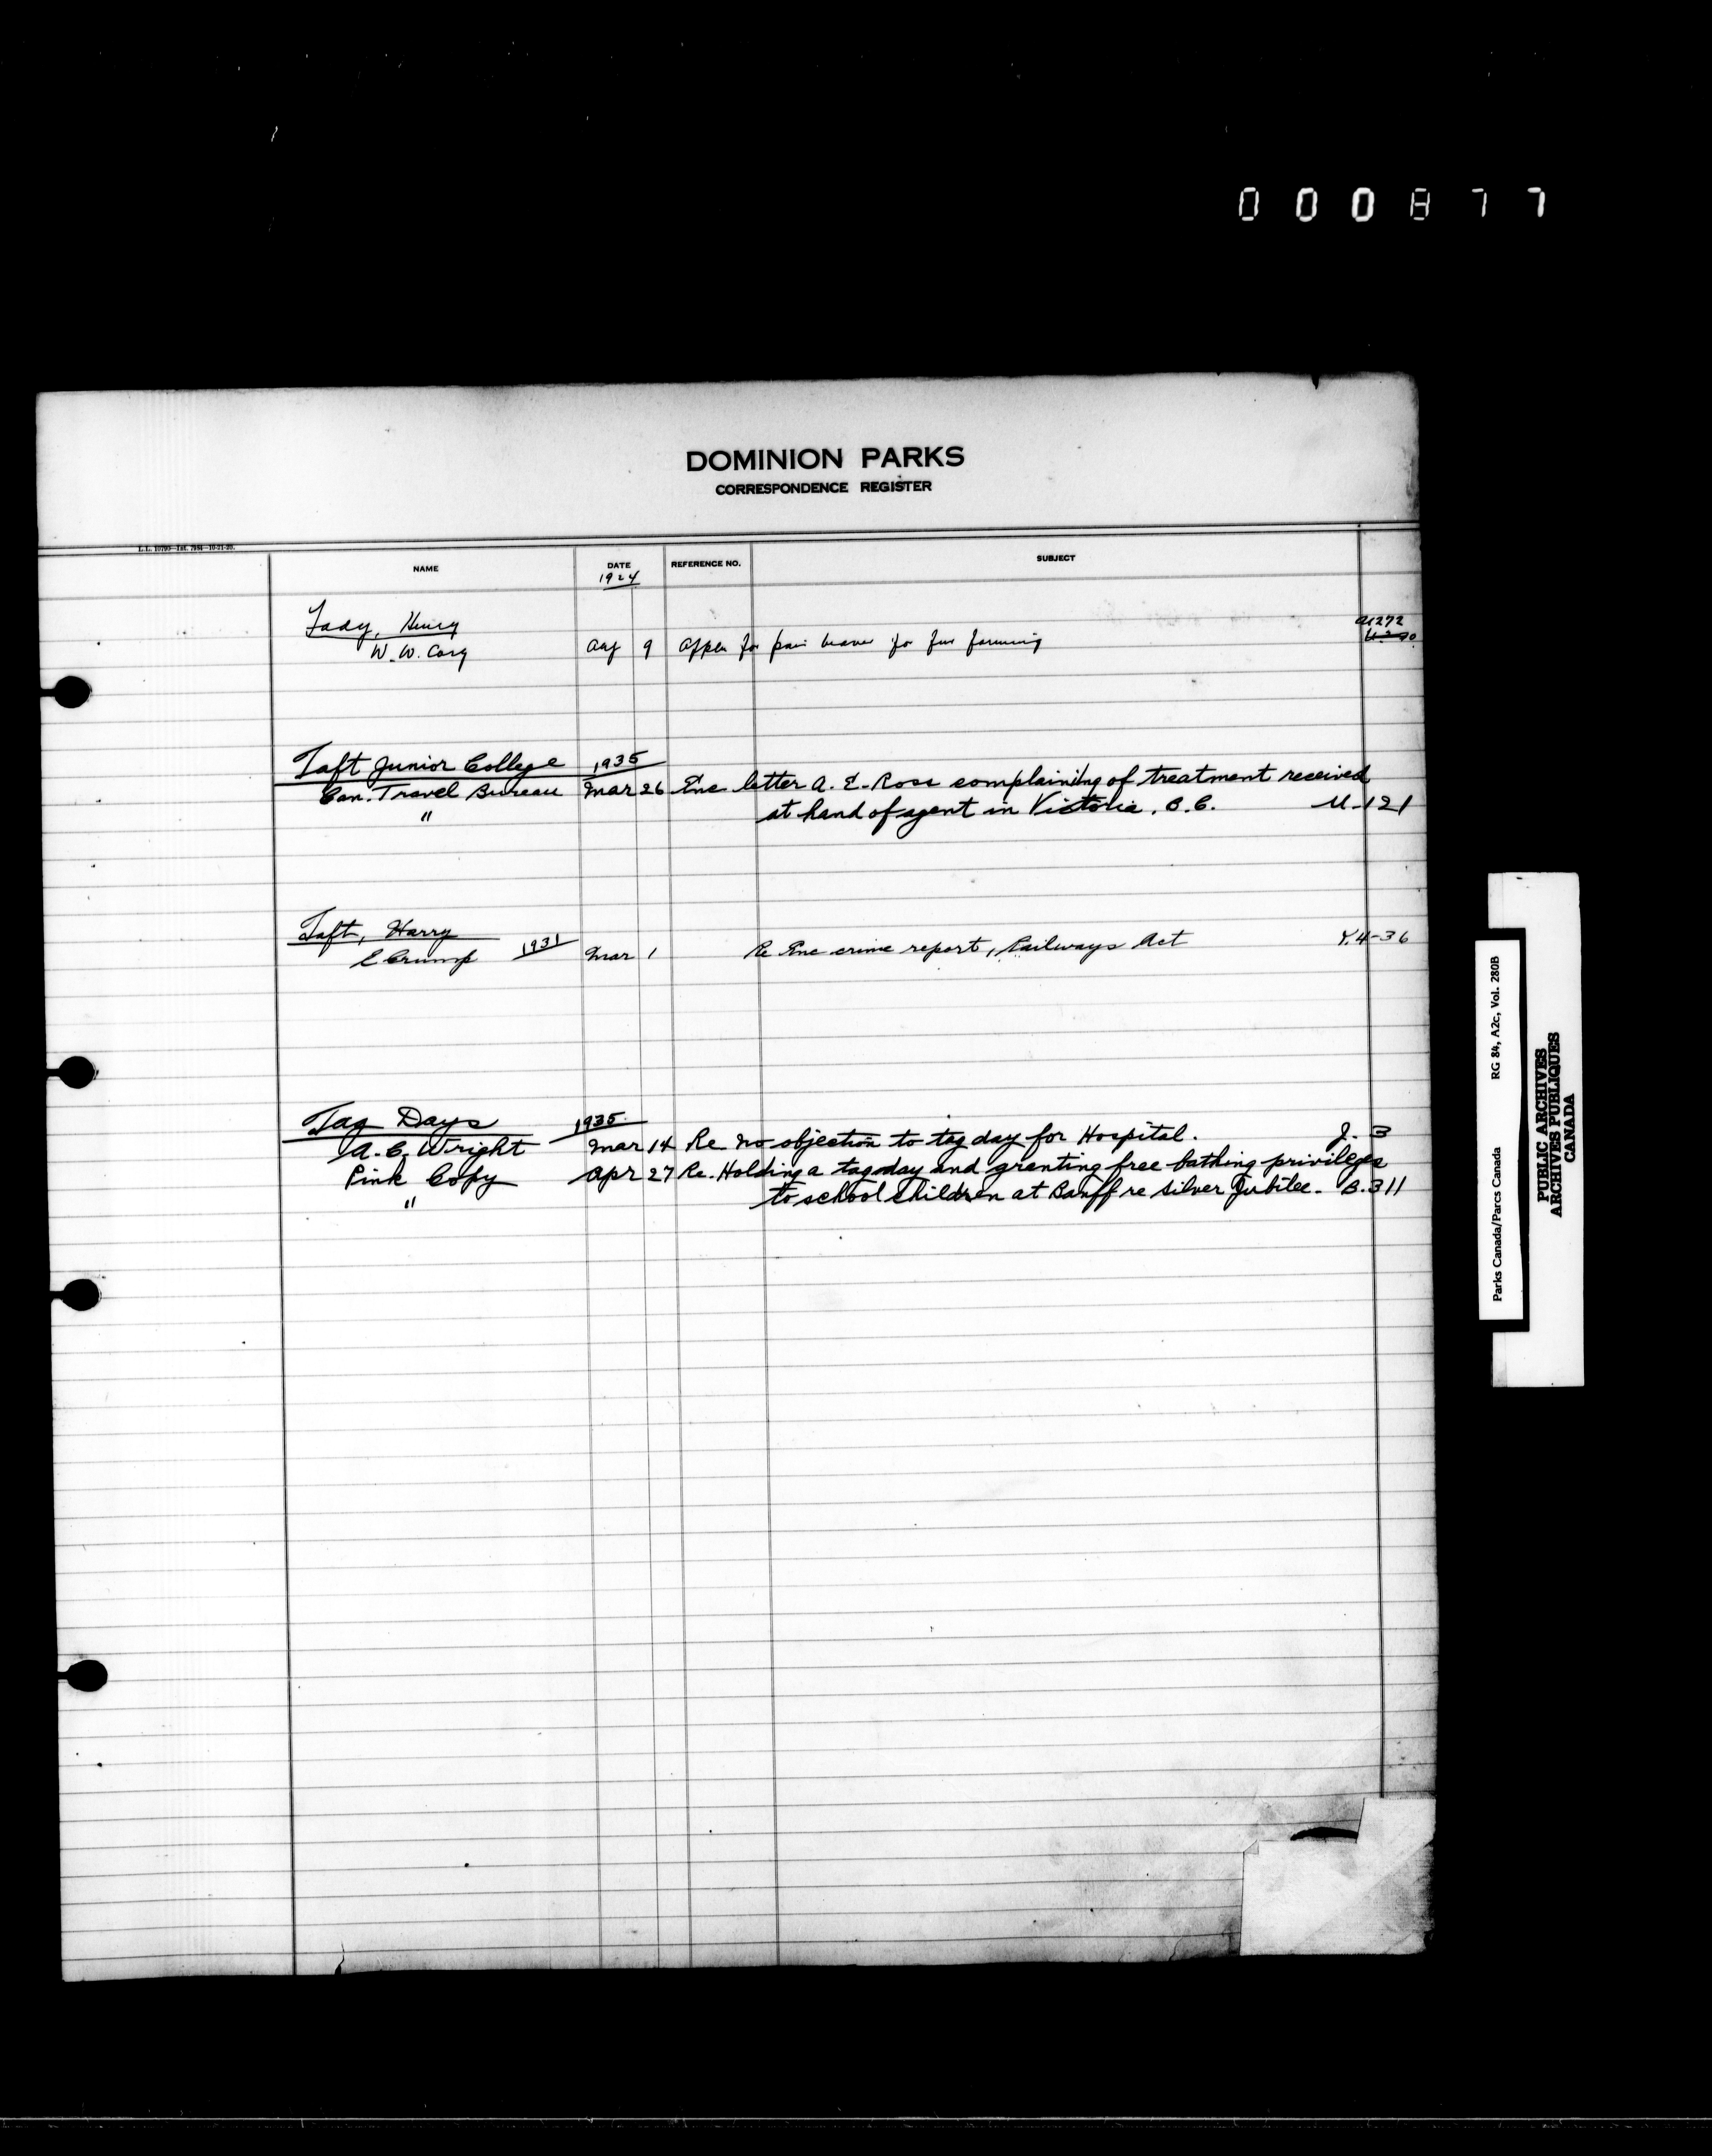 000877
DOMINION PARKS
CORRESPONDENCE REGISTER
L.L. 10790—Tat. 7984—10-21-20.
NAME DATE REFERENCE NO. SUBJECT
1924
Tady, Henry
W. W. Cory Aug 9 Appln for pair beaver for fur farming U272
Taft Junior College 1935
Can. Travel Bureau Mar 26 Enc letter A. E. Ross complaining of treatment received
" at hand of agent in Victoria, B.C. U-121
Taft, Harry
E Crump 1931 Mar 1 Re Enc crime report, Railways Act Y.4-36
Tag Days 1935
A. C. Wright Mar 14 Re. no objection to tag day for Hospital. J. 3
Pink Copy Apr 27 Re. Holding a tag day and granting free bathing privileges
" to school children at Banff re Silver Jubilee. B.311
Parks Canada/Parcs Canada RG 84, A2c, Vol. 280B
PUBLIC ARCHIVES
ARCHIVES PUBLIQUES
CANADA